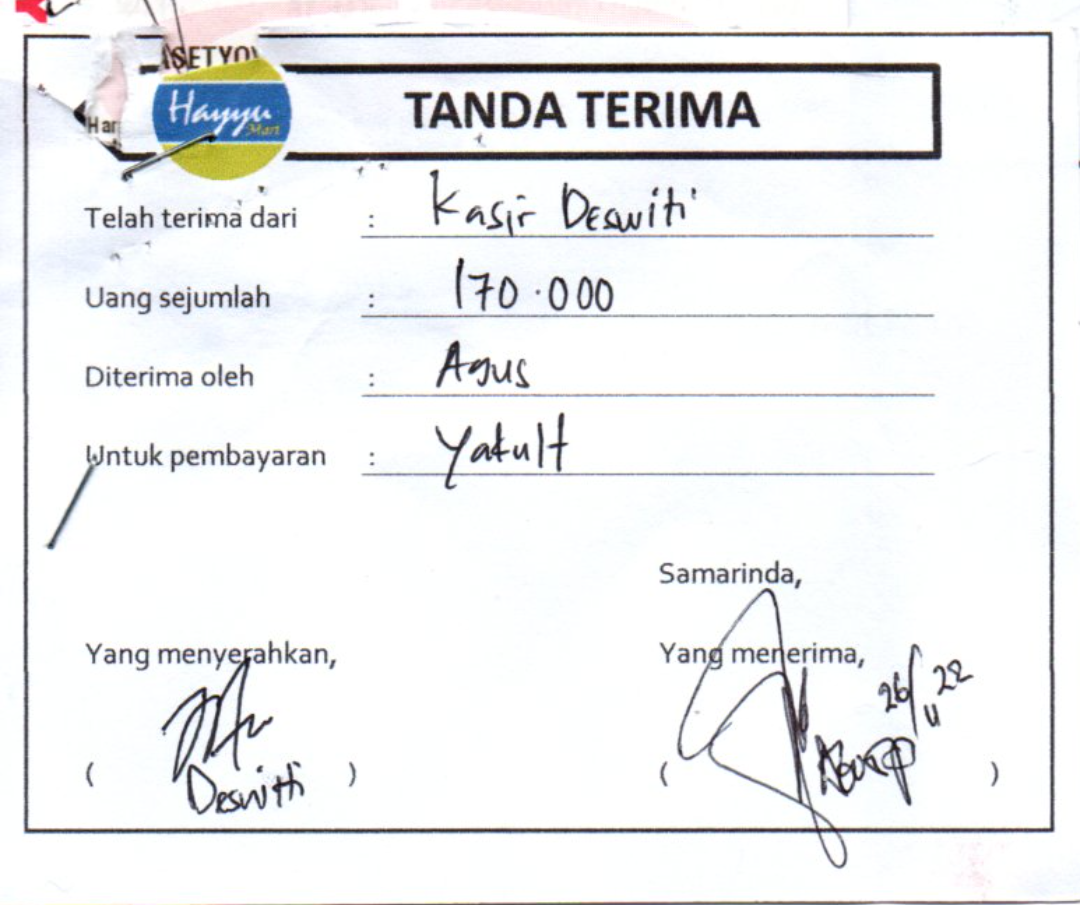 SETYO
Har
Hayyu
Mart
TANDA TERIMA
Telah terima dari : Kasir Deswiti
Uang sejumlah : 170.000
Diterima oleh : Agus
Untuk pembayaran : Yakult
Samarinda,
Yang menyerahkan,
Yang menerima,
26/11 22
( Deswiti )
( )